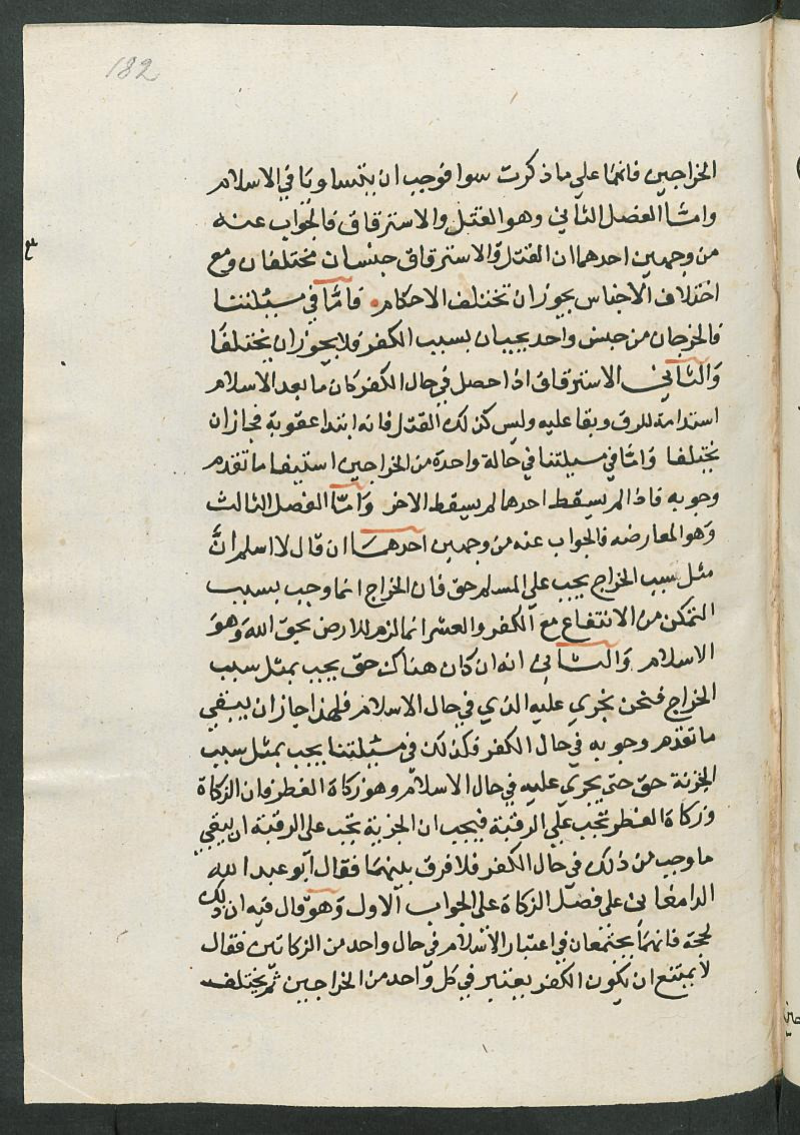 182
الخراجين فانهما علي ما ذكرت سوا فوجب ان يتساويا في الاسلام
وامّا الفصل الثاني وهو القتل والاسترقاق فالجواب عنه
من وجهين احدهما ان القتل والاسترقاق جنسان مختلفان ومع
اختلاف الاجناس يجوز ان تختلف الاحكام فامّا في مسئلتنا
فالخرجان من جنس واحد يجبان بسبب الكفر فلا يجوز ان يختلفا
والثاني الاسترقاق اذا حصل في حال الكفر كان ما بعد الاسلام
استدامة للرق وبقا عليه وليس كذلك القتل فانه ابتدا عقوبة فجاز ان
يختلفا وامّا في مسيلتنا في حالة واحدة من الخراجين استيفا ما تقدم
وجوبه فاذا لم يسقط احدهما لم يسقط الاخر وامّا الفصل الثالث
وهو المعارضه فالجواب عنه من وجهين احدهما ان قال لا اسلم انّ
مثل سبب الخراج يجب علي المسلم حق فان الخراج انما وجب بسبب
التمكن من الانتفاع مع الكفر والعشر انما لزم للارض بحق الله وهو
الاسلام والثاني انه ان كان هناك حق يجب بمثل سبب
الخراج فنحن نجري عليه الذي في حال الاسلام فلهذا جاز ان يبقي
ما تقدم وجوبه في حال الكفر فكذلك في مسئلتنا يجب بمثل سبب
الجزية حق حتى يجري عليه في حال الاسلام وهو زكاة الفطر فان الزكاة
وزكاة الفطر تجب علي الرقبة فيجب ان الجزية تجب على الرقبة ان يبقي
ما وجب من ذلك في حال الكفر فلا فرق بينهما فقال ابو عبد الله
الدامغاني على فصل الزكاة على الجواب الاول وهو قال فيه ان ذلك
لحجة فانهما يجتمعان في اعتبار الاسلام في حال واحد من الزكاتين فقال
لا يمتنع ان يكون الكفر يعتبر في كل واحد من الخراجين ثم يختلف